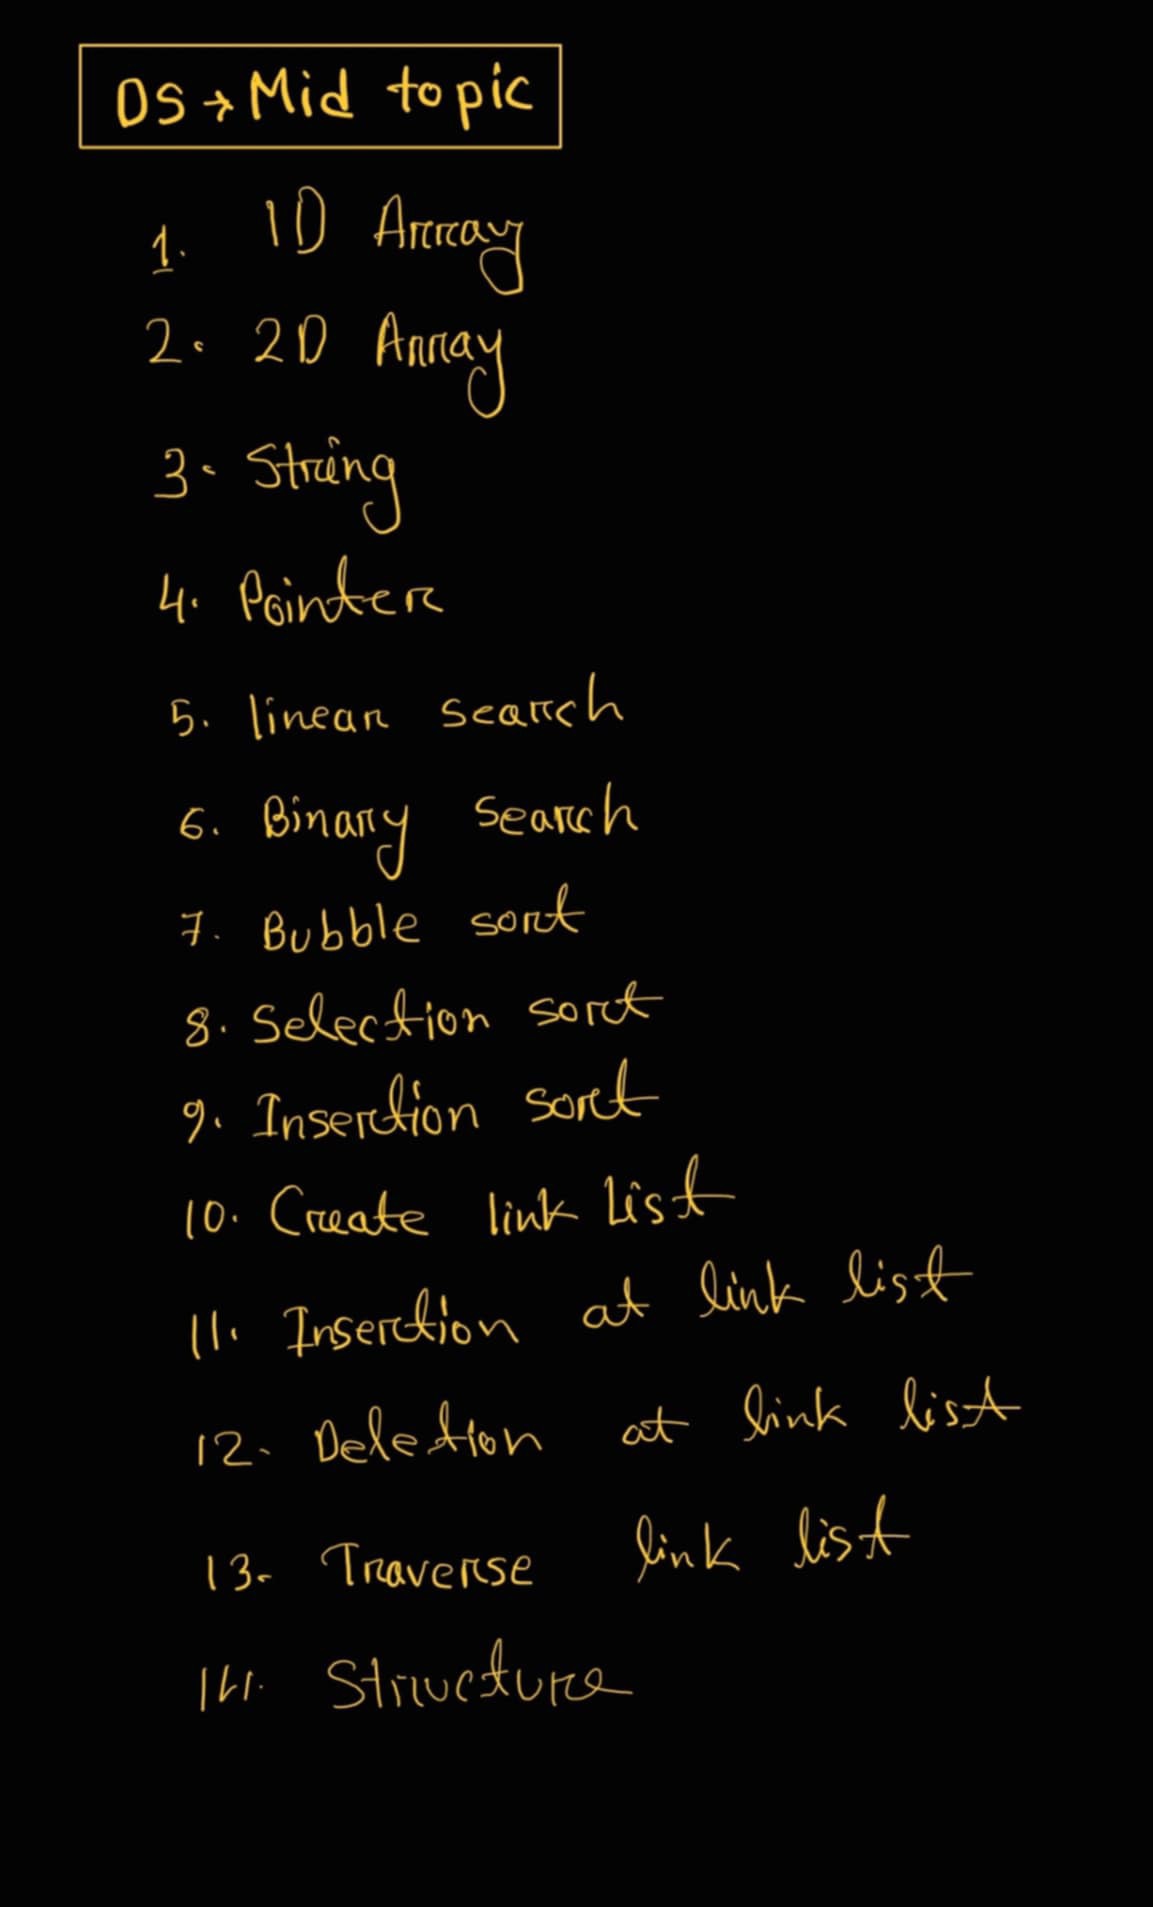 DS → Mid topic
1. 1D Array
2. 2D Array
3. String
4. Pointer
5. linear search
6. Binary Search
7. Bubble sort
8. Selection sort
9. Insertion sort
10. Create link List
11. Insertion at link list
12. Deletion at link list
13. Traverse link list
14. Structure